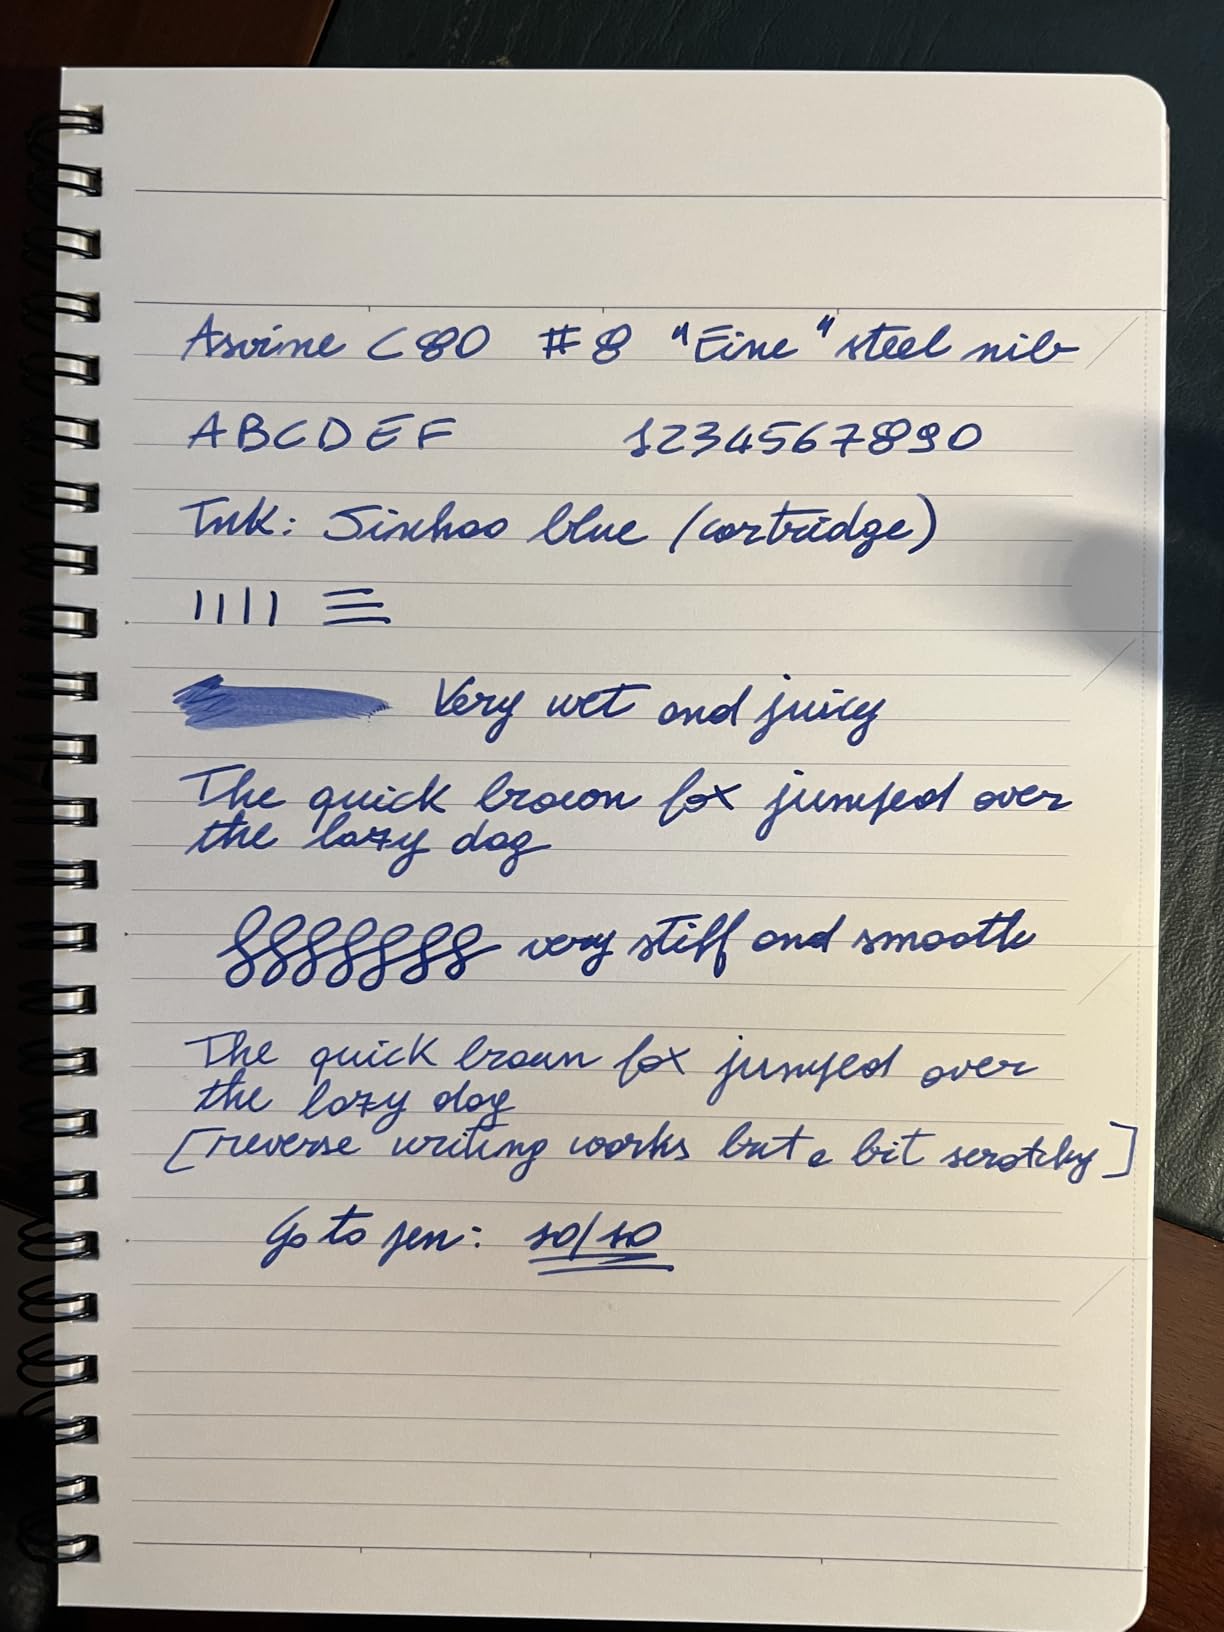 Asvine C80 #8 "Fine" steel nib
ABCDEF 1234567890
Ink: Jinhao blue (cartridge)
Very wet and juicy
The quick brown fox jumped over
the lazy dog
very stiff and smooth
The quick brown fox jumped over
the lazy dog
[reverse writing works but a bit scratchy]
Go to pen: 10/10